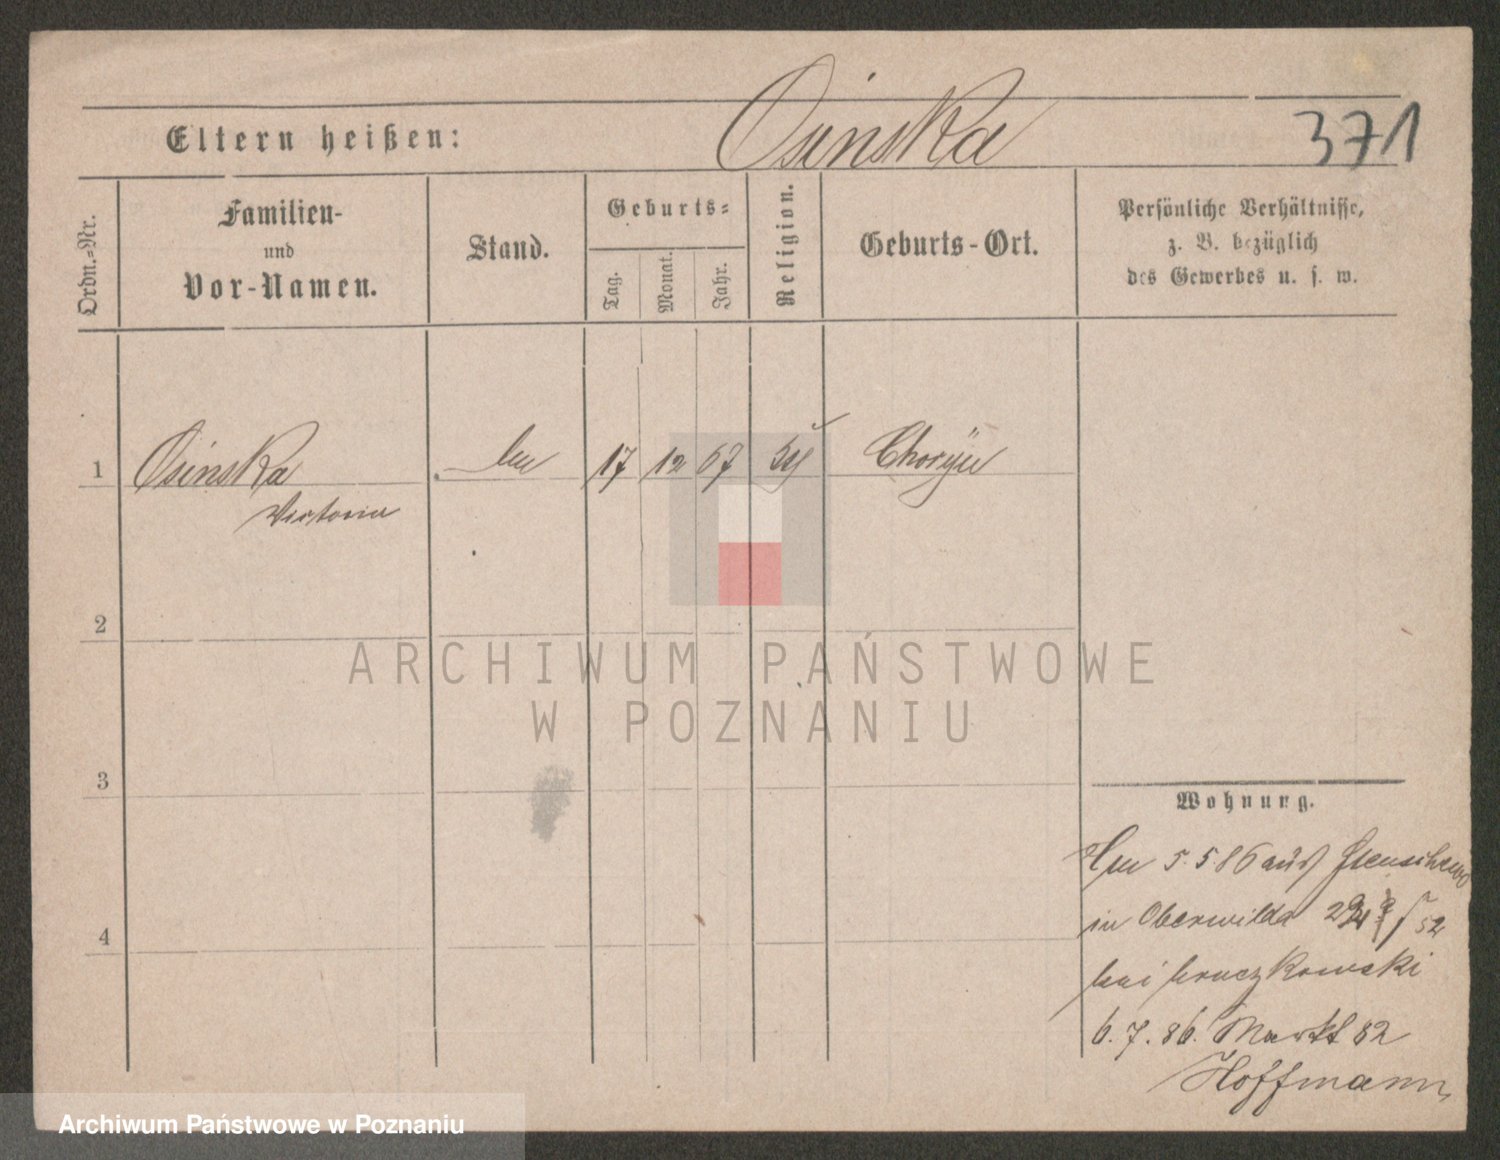 Osinska
Eltern heißen:
371
Ordn.-Nr.
Familien-
und
Vor-Namen.
Stand.
Geburts-
Tag.
Monat.
Jahr.
Religion.
Geburts-Ort.
Persönliche Verhältnisse,
z. B. bezüglich
des Gewerbes u. s. w.
1 Osinska 17 12 67
Victoria
2
3
4
ARCHIWUM PAŃSTWOWE
W POZNANIU
Wohnung.
5. 5. 86 aus
in Oberwilda 52
bei
6. 7. 86. Markt 82
Hoffmann
Archiwum Państwowe w Poznaniu